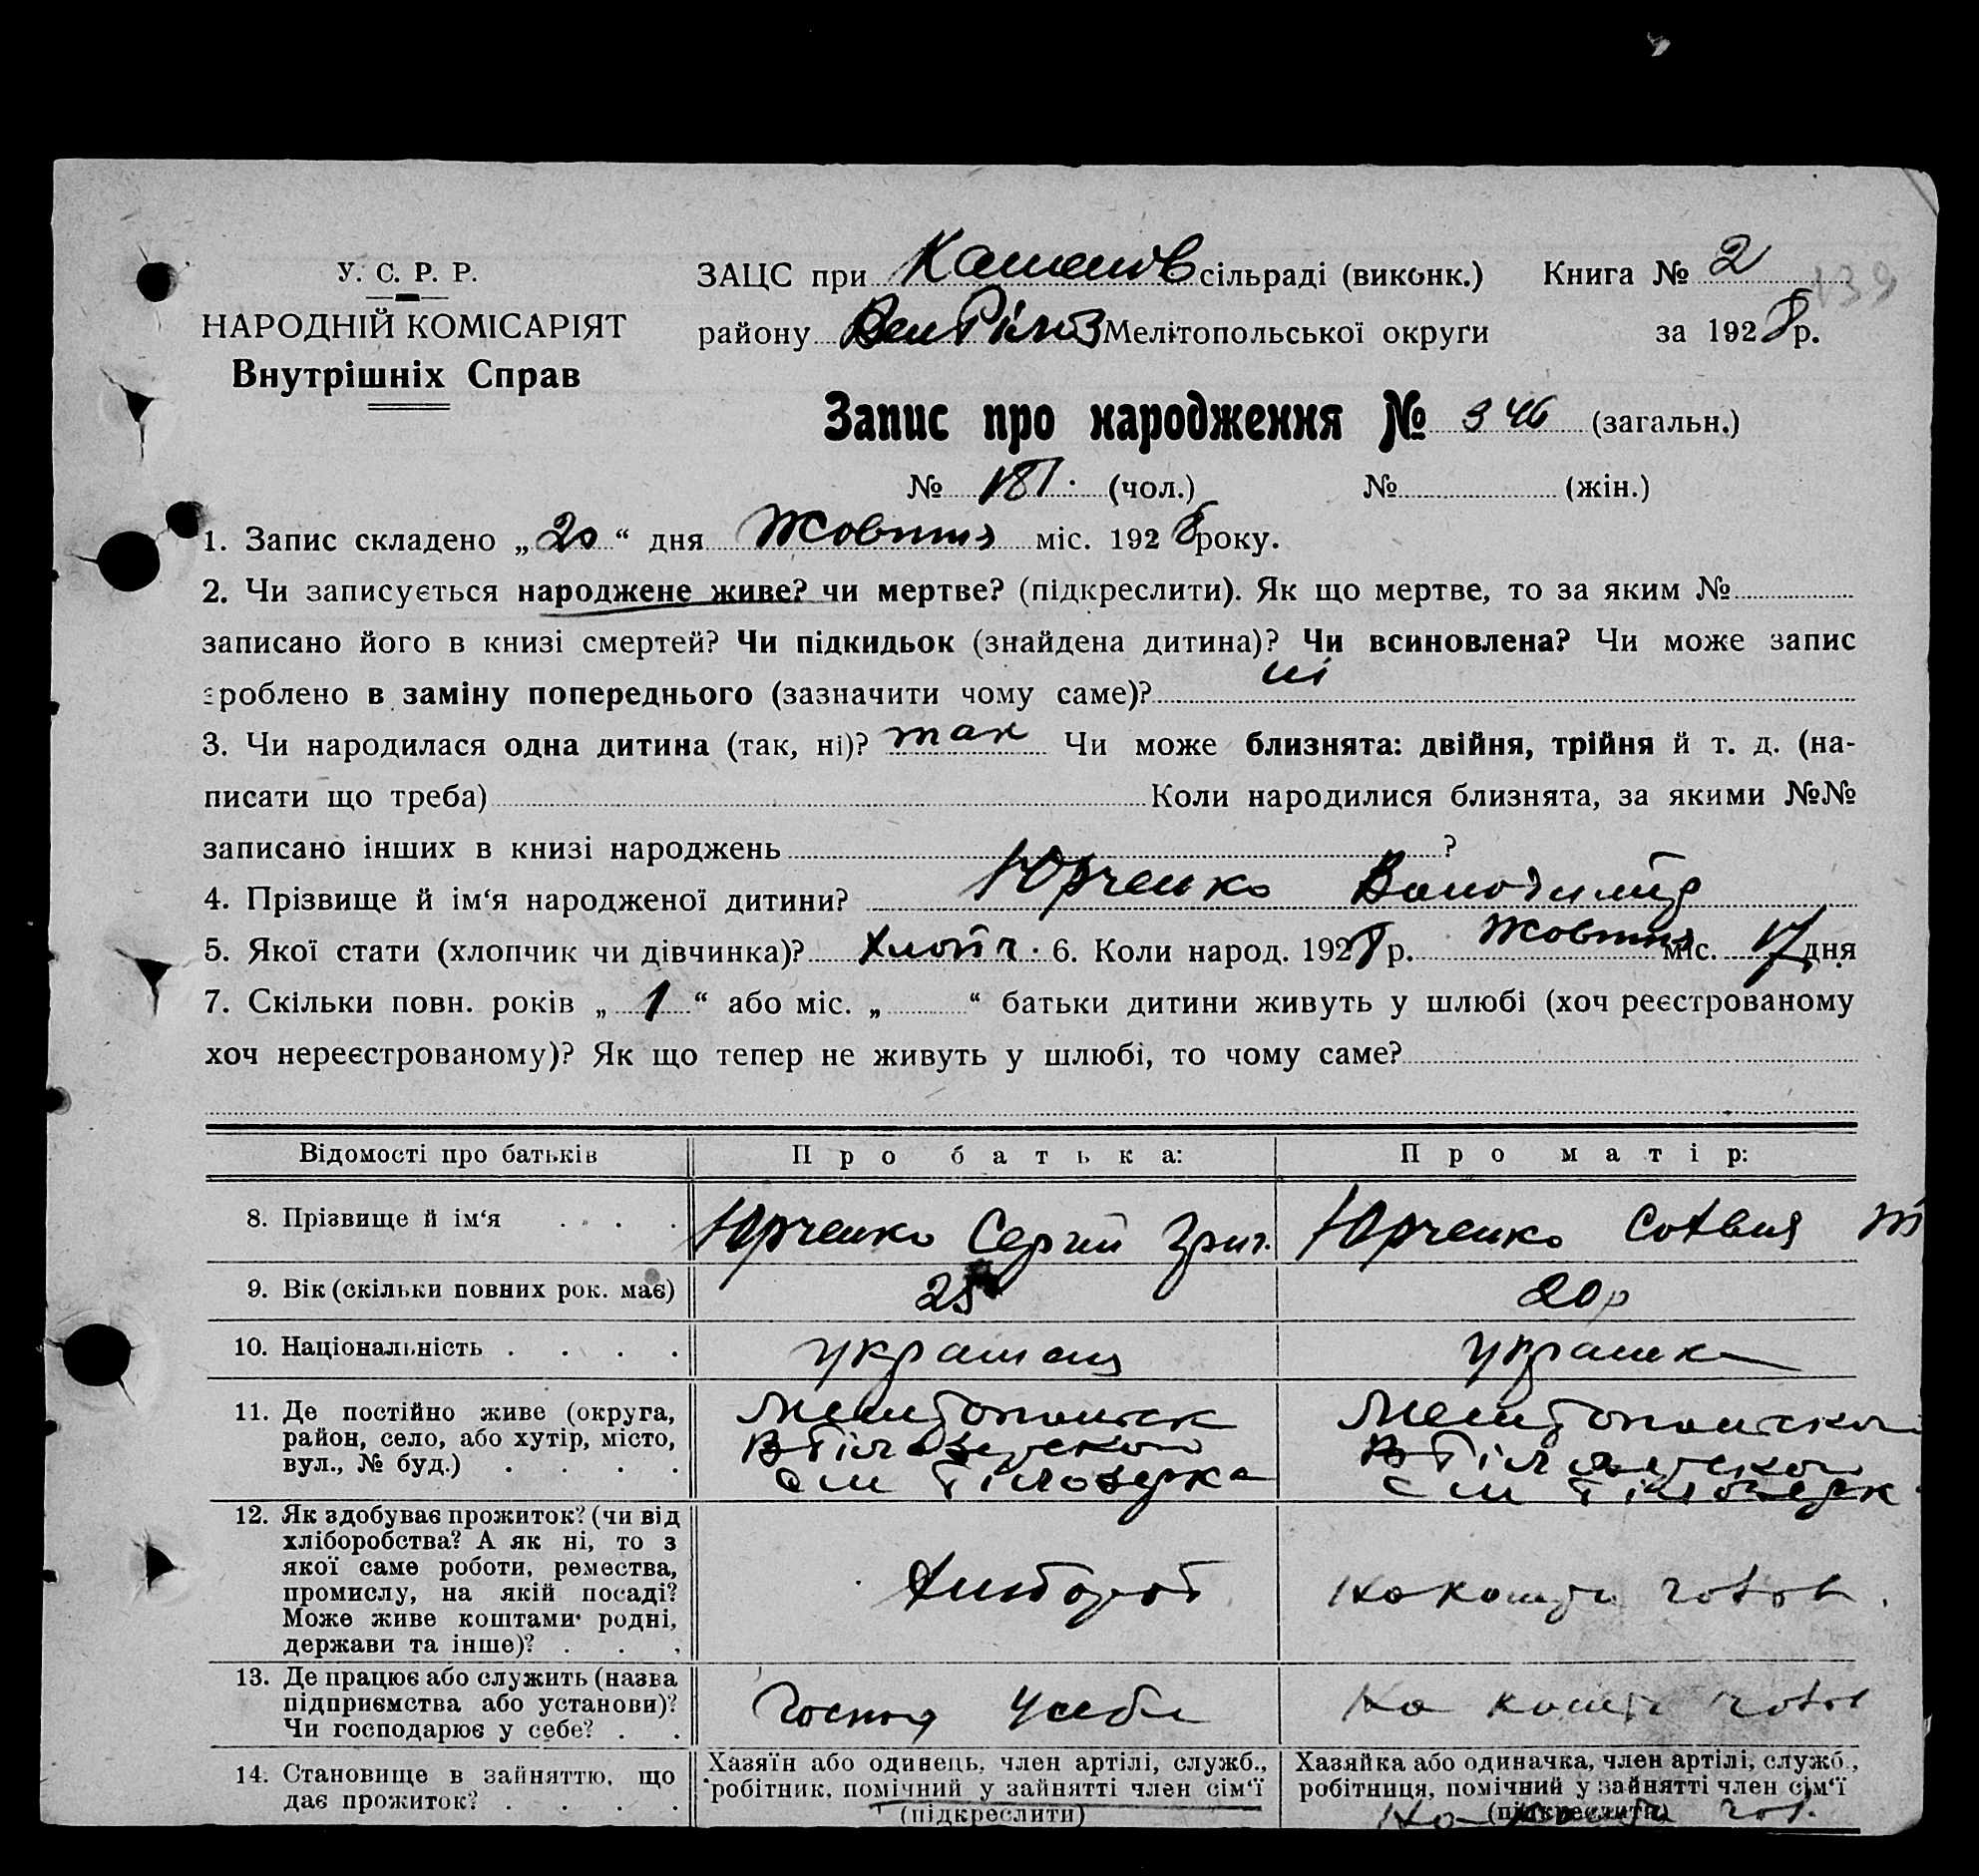 139
У. С. Р. Р.
НАРОДНІЙ КОМІСАРІЯТ
Внутрішніх Справ
ЗАЦС при сільраді (виконк.) Книга № 2
району Мелітопольської округи за 1928 р.
Запис про народження № 346 (загальн.)
№ 181. (чол.) № (жін.)
1. Запис складено „20“ дня Жовтня міс. 1928 року.
2. Чи записується народжене живе? чи мертве? (підкреслити). Як що мертве, то за яким №
записано його в книзі смертей? Чи підкидьок (знайдена дитина)? Чи всиновлена? Чи може запис
зроблено в заміну попереднього (зазначити чому саме)? ні
3. Чи народилася одна дитина (так, ні)? так Чи може близнята: двійня, трійня й т. д. (на-
писати що треба) Коли народилися близнята, за якими №№
записано інших в книзі народжень ?
4. Прізвище й ім‘я народженої дитини? Юрченко Володимір
5. Якої стати (хлопчик чи дівчинка)? хлопч. 6. Коли народ. 1928 р. Жовтня міс. 17 дня
7. Скільки повн. років „1“ або міс. „ “ батьки дитини живуть у шлюбі (хоч реєстрованому
хоч нереєстрованому)? Як що тепер не живуть у шлюбі, то чому саме?
Відомості про батьків Про батька: Про матір:
8. Прізвище й ім‘я . . . . Юрченко Сергій Григ. Юрченко Софія
9. Вік (скільки повних рок. має) 25 20 р
10. Національність . . . . українец українка
11. Де постійно живе (округа,
район, село, або хутір, місто,
вул., № буд.) . . . .
Мелітопольск
В Білозерского
Білозерка
Мелітопольско
В Білозерского
Білозерк
12. Як здобуває прожиток? (чи від
хліборобства? А як ні, то з
якої саме роботи, ремества,
промислу, на якій посаді?
Може живе коштами родні,
держави та інше)? . . .
хлібороб
На кошти чолов.
13. Де працює або служить (назва
підприємства або установи)?
Чи господарює у себе? . .
Господ у себе
На кошти чолов
14. Становище в зайняттю, що
дає прожиток? . . . .
Хазяїн або одинець, член артілі, служб.,
робітник, помічний у зайнятті член сім‘ї
(підкреслити)
Хазяйка або одиначка, член артілі, служб.,
робітниця, помічний у зайнятті член сім‘ї
(підкреслити)
На кошти чол.